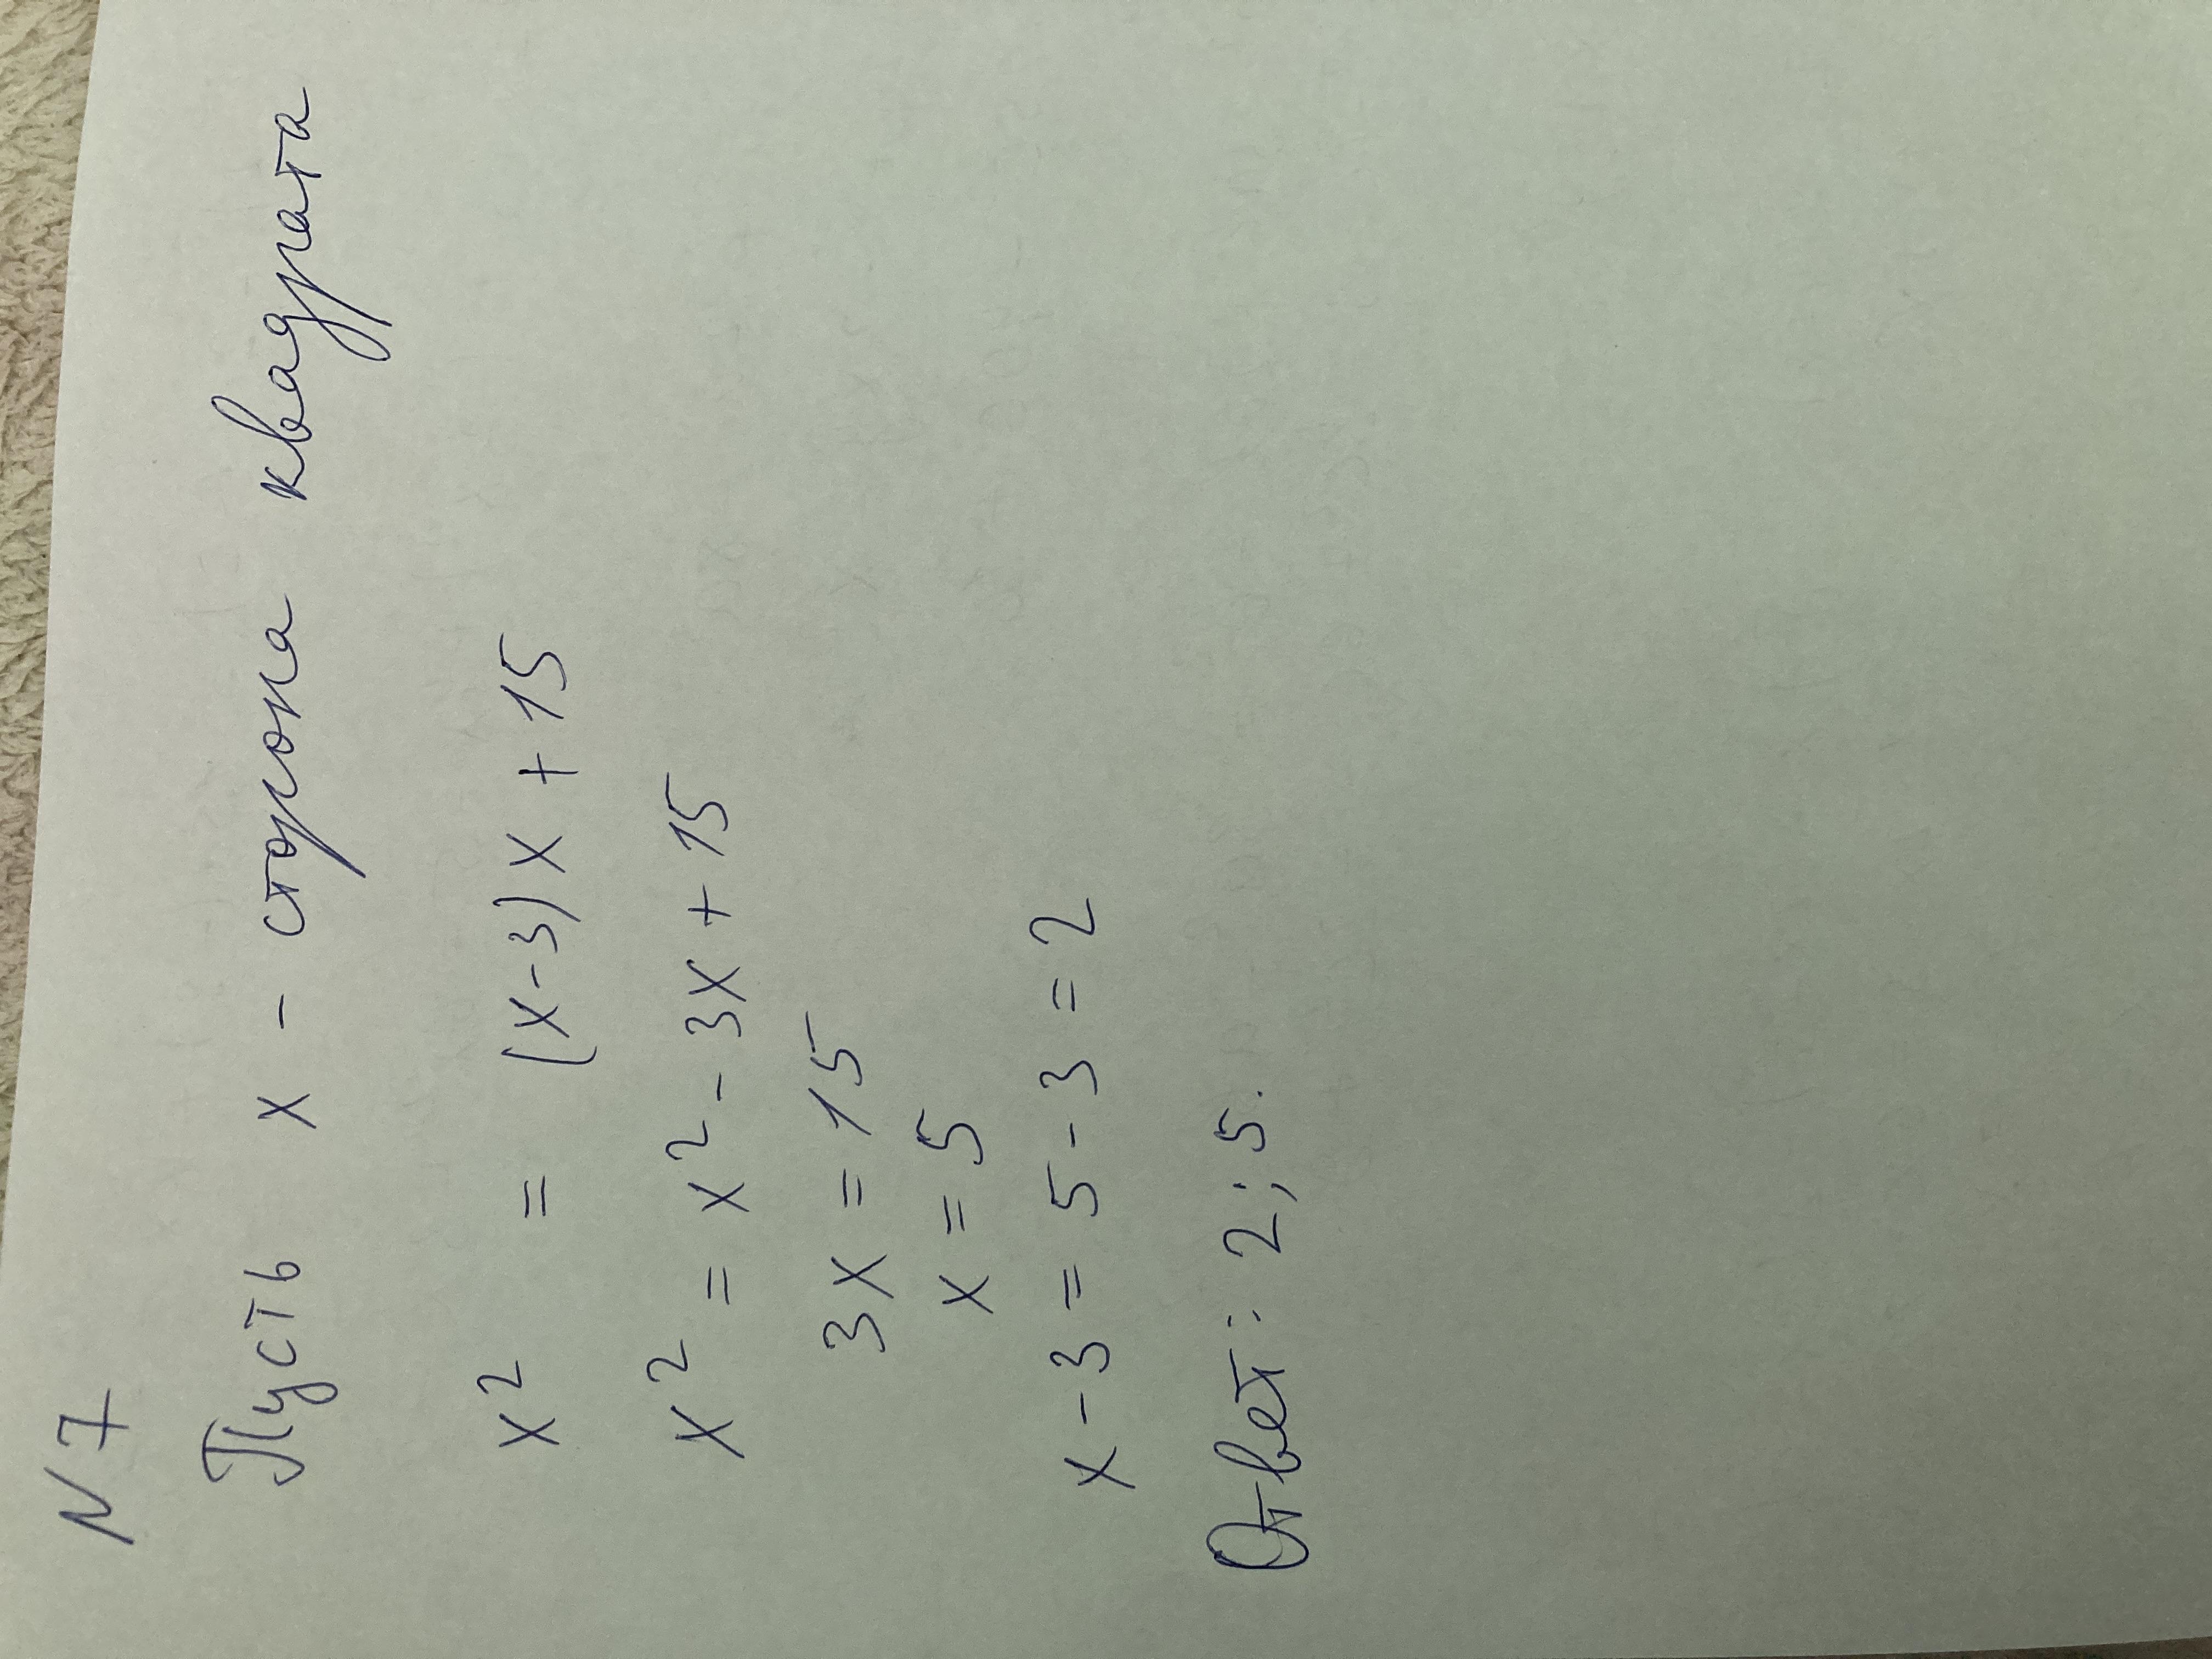 N 7
Пусть x - сторона квадрата
x² = (x-3)x + 15
x² = x² - 3x + 15
3x = 15
x = 5
x - 3 = 5 - 3 = 2
Ответ: 2; 5.